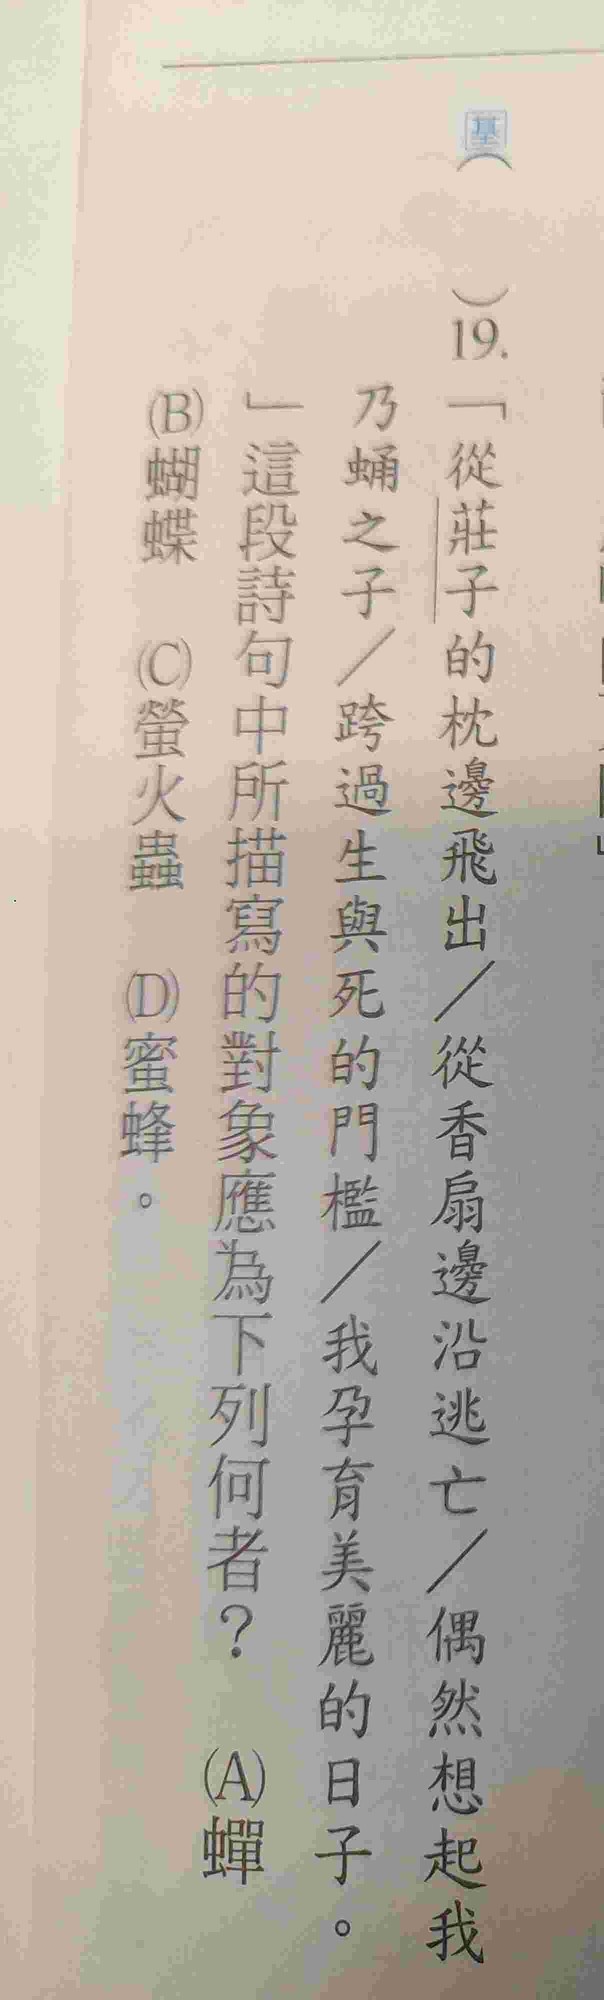 基（　）19.「從莊子的枕邊飛出／從香扇邊沿逃亡／偶然想起我
乃蛹之子／跨過生與死的門檻／我孕育美麗的日子。
」這段詩句中所描寫的對象應為下列何者？　(A)蟬
(B)蝴蝶　(C)螢火蟲　(D)蜜蜂。